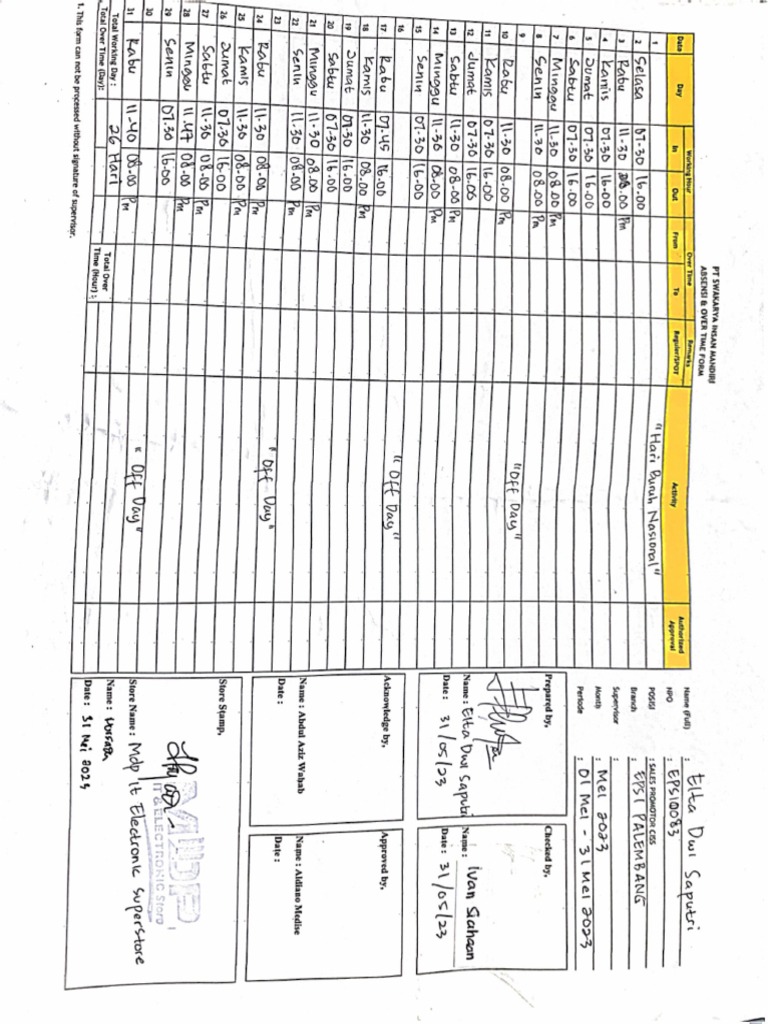 PT SWAKARYA INSAN MANDIRI
ABSENSI & OVER TIME FORM
Name (Full) : Elta Dwi Saputri
NPO : EPS10083
POSISI : SALES PROMOTOR CISS
Branch : EPSI PALEMBANG
Supervisor :
Month : Mei 2023
Periode : 01 Mei - 31 Mei 2023
Date Day Working Hour Over Time Remarks Activity Authorized Approval
In Out From To Reguler/SPOT
1 "Hari Buruh Nasional"
2 Selasa 07-30 16.00
3 Rabu 11-30 08.00 Pm
4 Kamis 07-30 16.00
5 Jumat 07-30 16.00
6 Sabtu 07-30 16.00
7 Minggu 11-30 08.00 Pm
8 Senin 11.30 08.00 Pm
9 "Off Day"
10 Rabu 11-30 08.00 Pm
11 Kamis 07-30 16.00
12 Jumat 07-30 16.00
13 Sabtu 11-30 08-00 Pm
14 Minggu 11-30 08-00 Pm
15 Senin 07-30 16.00
16 "Off Day"
17 Rabu 07-45 16.00
18 Kamis 11-30 08.00 Pm
19 Jumat 07.30 16.00
20 Sabtu 07-30 16.00
21 Minggu 11-30 08.00 Pm
22 Senin 11.30 08-00 Pm
23 "Off Day"
24 Rabu 11-30 08-00 Pm
25 Kamis 11-30 08-00 Pm
26 Jumat 07.30 16.00
27 Sabtu 11-30 08.00 Pm
28 Minggu 11.47 08-00 Pm
29 Senin 07.30 16-00
30 "Off Day"
31 Rabu 11-40 08-00 Pm
Total Working Day : 26 Hari Total Over
Total Over Time (Day): Time (Hour) :
1. This form can not be processed without signature of supervisor.
Prepared by,
Name : Elta Dwi Saputri
Date : 31/05/23
Checked by,
Name : Ivan Siahaan
Date : 31/05/23
Acknowledge by,
Name : Abdul Aziz Wahab
Date :
Approved by,
Name : Aldiano Medise
Date :
Store Stamp,
MDP
IT & ELECTRONIC Store
Store Name : Mdp It Electronic Superstore
Name :
Date : 31 Mei 2023